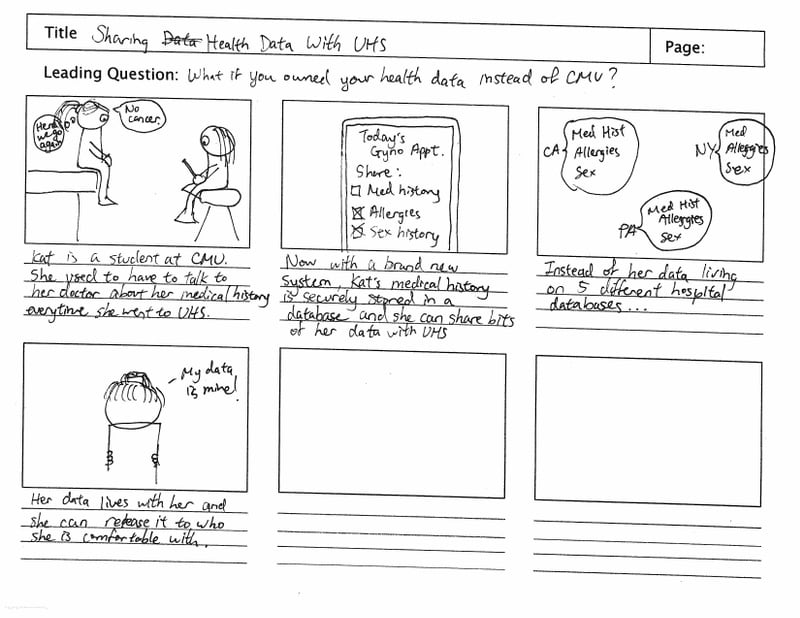 Title Sharing Data Health Data With UHS
Page:
Leading Question: What if you owned your health data instead of CMU?
Here
we go
again
No
cancer.
Kat is a student at CMU.
She used to have to talk to
her doctor about her medical history
everytime she went to UHS.
Today's
Gyno Appt.
Share:
☐ Med history
☒ Allergies
☒ Sex history
Now with a brand new
system, Kat's medical history
is securely stored in a
database and she can share bits
of her data with UHS
CA
Med Hist
Allergies
Sex
NY
Med
Allergies
Sex
PA
Med Hist
Allergies
Sex
Instead of her data living
on 5 different hospital
databases...
My data
is mine!
Her data lives with her and
she can release it to who
she is comfortable with.